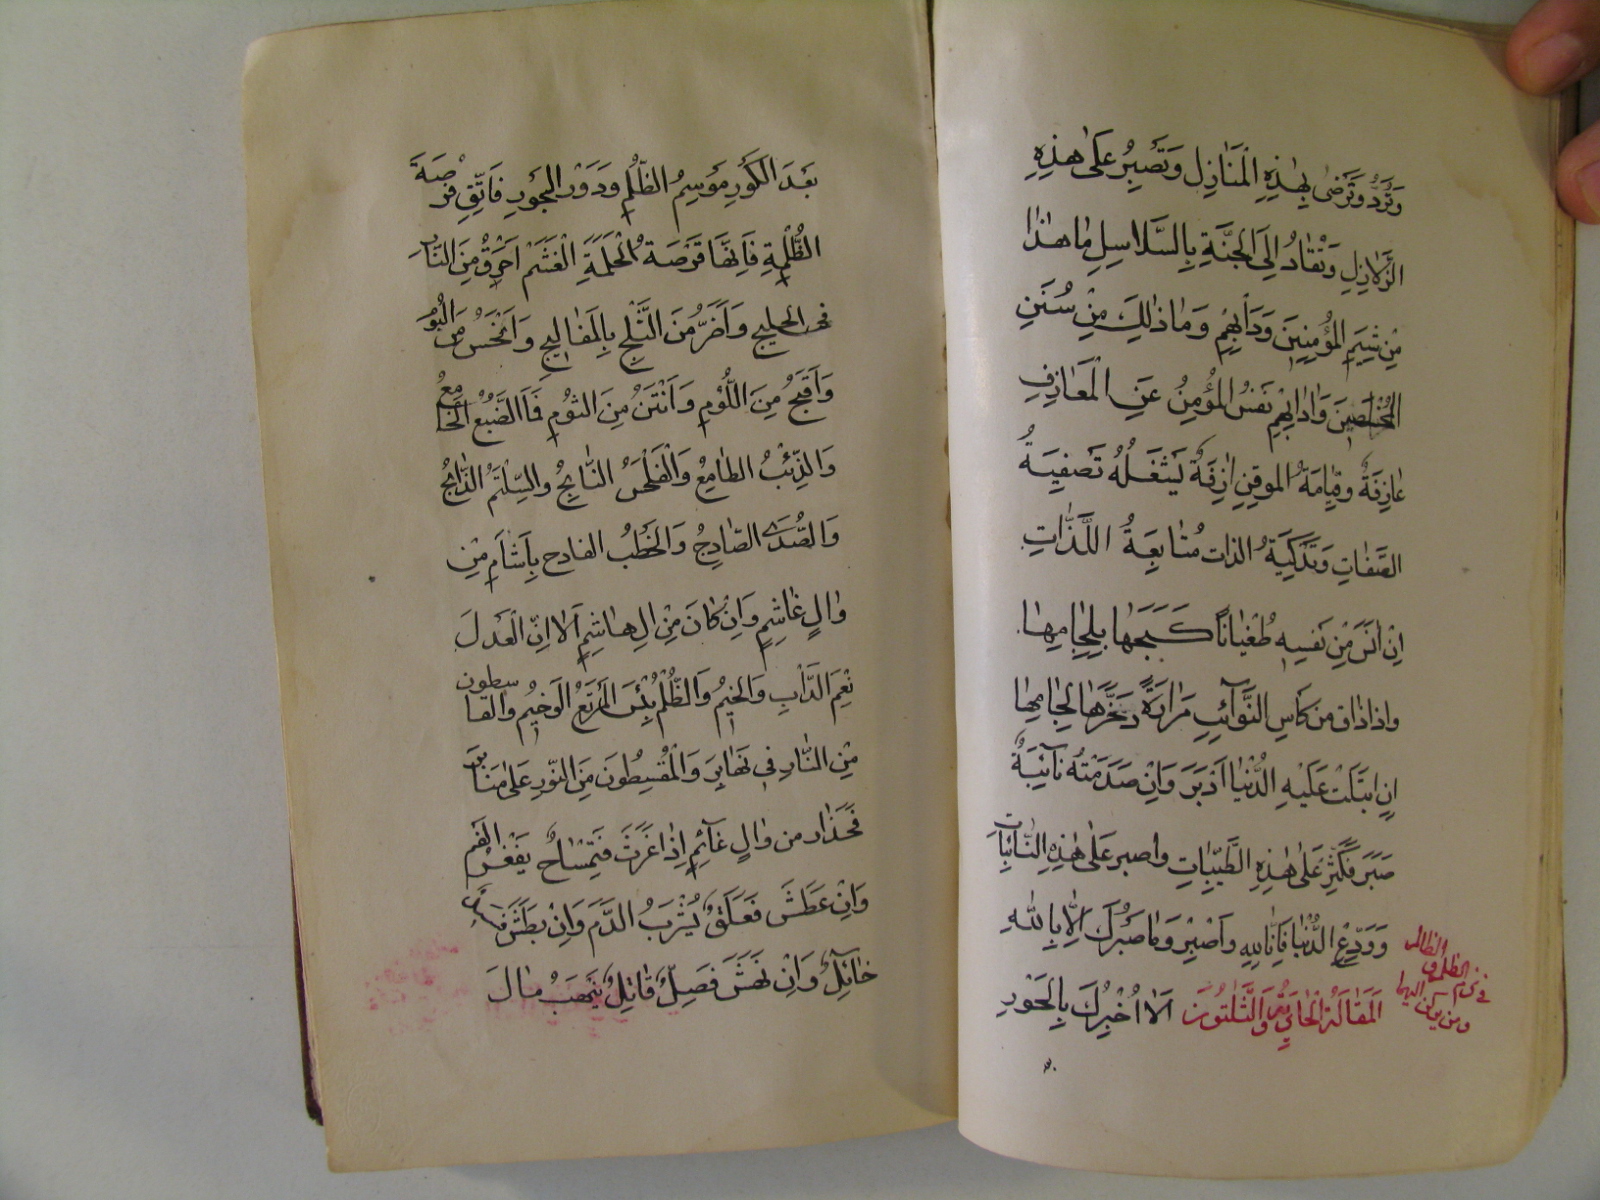 وَتَرُدُّ وَتَرْضىٰ بِهٰذِهِ الْمَنَازِلِ وَتَصْبِرُ عَلىٰ هٰذِهِ
الزَّلَازِلِ وَتُقَادُ اِلَى الْجَنَّةِ بِالسَّلَاسِلِ مَا هٰذَا
مِنْ شِيَمِ الْمُؤْمِنِينَ وَدَأْبِهِمْ وَمَا ذٰلِكَ مِنْ سُنَنِ
الْمُخْلَصِينَ وَاٰدَابِهِمْ نَفْسُ الْمُؤْمِنُ عَنِ الْمَعَازِفِ
عَازِفَةٌ وَقِيَامَةُ الموقِنِ اٰزِفَةٌ يَشْغَلُهُ تَصْفِيَةُ
الصِّفَاتِ وَتَذْكِيَةُ الذات مُتَابِعَةُ اللَّذَّاتِ
اِنْ اٰنَسَ مِنْ نَفْسِهِ طُغْيَانًا كَبَحَهَا بِلِجَامِهَا
واذا ذاق من كَاسِ النَّوَآئِبِ مَرَارَةً
اِنِ عَلَيْهِ الدُّنْيَا اَدْبَرَ وَاِنْ صَدَمَتْهُ نَآئِبَةٌ
صَبَرَ فَكَبِّرْ عَلىٰ هٰذِهِ الطَّيِّبَاتِ واصبر عَلىٰ هٰذِهِ النَّائِبَاتِ
وَوَدِّعِ الدُّنْيَا وَاَصْبِرْ وَمَا صَبْرُكَ اِلَّا بِاللّٰهِ
الْمَقَالَةُ الْحَادِيَةُ وَالثَّلٰثُونَ اَلَا اُخْبِرُكَ بِالْحَوْرِ
في ذم الظلم و الظالم
ومن يركن اليها
بَعْدَ الْكَوْرِ مَوْسِمُ الظُّلْمِ وَدَوْرُ الْجَوْرِ فَاتَّقِ فُرْصَةَ
الظُّلْمَةِ فَاِنَّهَا قَرْصَةُ الْحَلَمَةِ الْغَشْمُ اَحْرَقُ مِنَ النَّارِ
فى وَاَضَرُّ مِنَ الثَّلْجِ بِالْمَفَالِيجِ وَاَنْحَسُ مِنَ الْبُومِ
وَاَقْبَحُ مِنَ اللُّؤْمِ وَاَنْتَنُ مِنَ الثُومِ فَمَا الضَّبُعُ الْخَامِعُ
وَالذِّئْبُ الطَّامِعُ وَالْفَلْحَسُ النَّابِحُ وَالسِّلْتَمُ الذَّابِحُ
وَالصُّدَى الصَّادِحُ وَالْخَطْبُ الفادح بِاَشْاَمَ مِنْ
وٰالٍ غَاشِمٍ وَاِنْ كَانَ مِنْ اٰلِ هَاشِمٍ اَلَا اِنَّ الْعَدْلَ
نِعْمَ الدَّابِ وَالْخِيمُ وَالظُّلْمُ بِئْسَ الْمَرْتَعُ الْوَخِيمُ وَالْقَاسِطُونَ
مِنَ النَّارِ فِى نَهَابِرَ وَالْمُقْسِطُونَ مِنَ النُّورِ عَلىٰ مَنَابِرَ
فَحَذَارِ من وٰالٍ اِذَا غَرِثَ فَتِمْسَاحٌ يَفْغَرُ الفَم
وَاِنْ عَطَشَ فَعَلَقٌ يَشْرَبُ الدَّمَ وَاِنْ بَطَشَ
وَاِنْ نَهَشَ فَصِلٌّ قَاتِلٌ يَنْهَبُ مَالَ